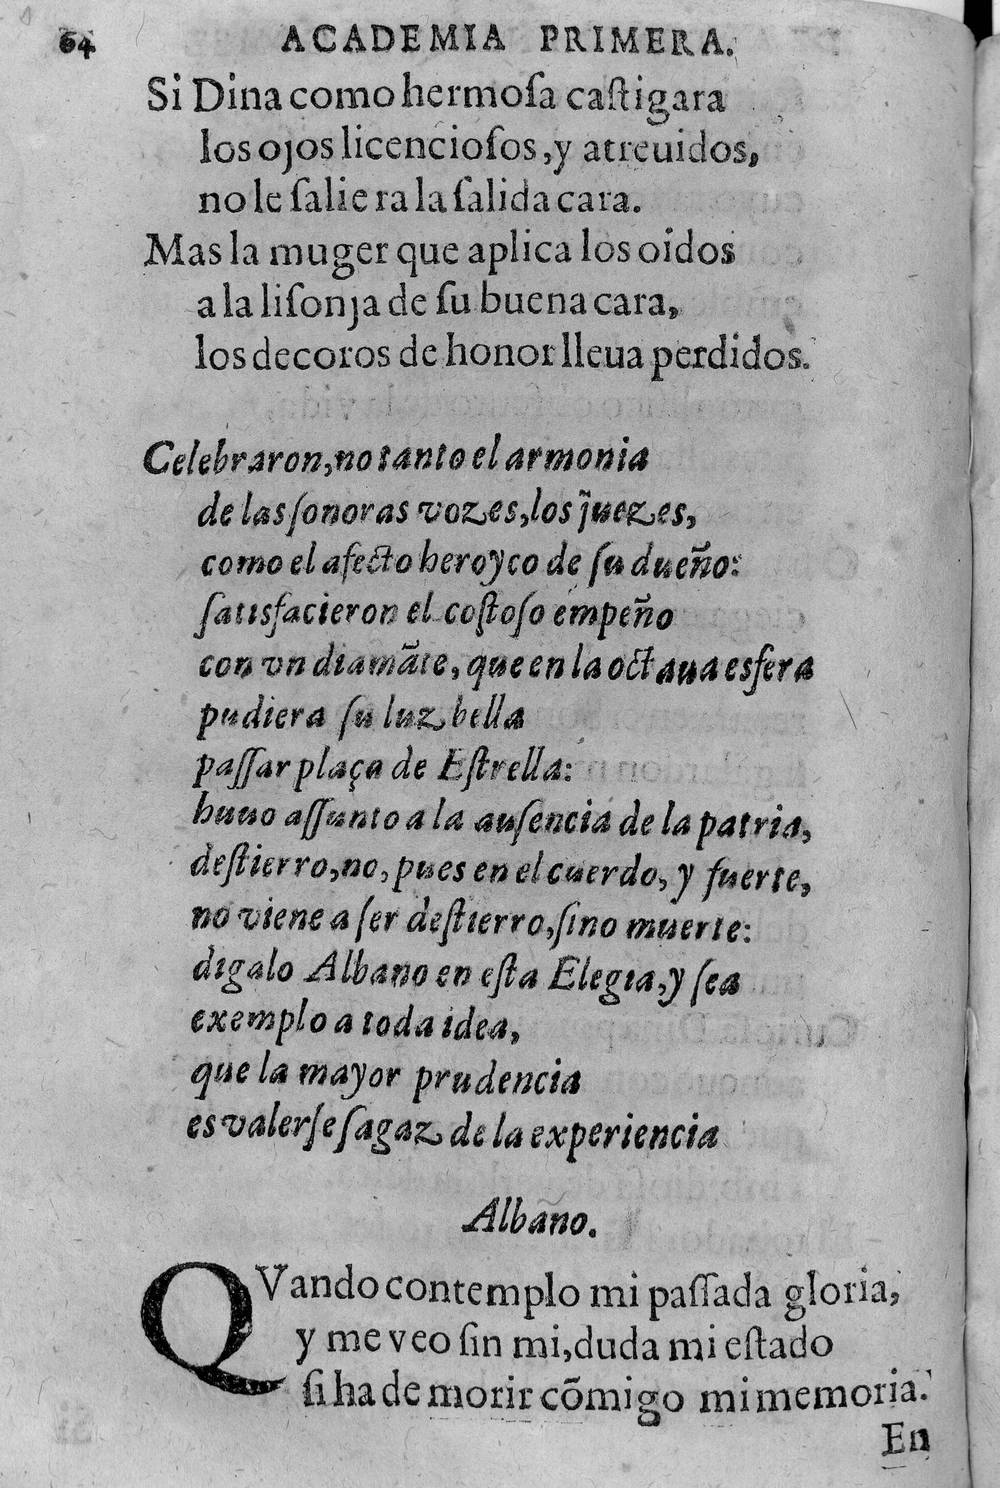 64 ACADEMIA PRIMERA.
Si Dina como hermoſa caſtigara
los ojos licencioſos, y atreuidos,
no le ſaliera la ſalida cara.
Mas la muger que aplica los oidos
a la liſonja de ſu buena cara,
los decoros de honor lleua perdidos.
Celebraron, no tanto el armonia
de las ſonoras vozes, los juezes,
como el afecto heroyco de ſu dueño:
ſatisfacieron el coſtoſo empeño
con vn diamãte, que en la octaua esfera
pudiera ſu luz bella
paſſar plaça de Eſtrella:
huuo aſſunto a la auſencia de la patria,
deſtierro, no, pues en el cuerdo, y fuerte,
no viene a ſer deſtierro, ſino muerte:
digalo Albano en eſta Elegia, y ſea
exemplo a toda idea,
que la mayor prudencia
es valerſe ſagaz de la experiencia
Albano.
QVando contemplo mi paſſada gloria,
y me veo ſin mi, duda mi eſtado
ſi ha de morir cõmigo mi memoria.
En